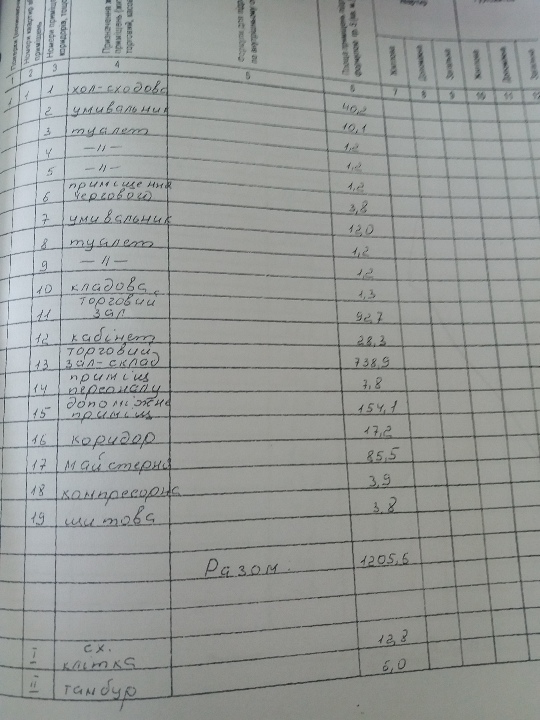 1 2 3 4 5 6 7 8 9 10 11 12
1 1 1 хол-сходова 40,2
2 умивальник 10,1
3 туалет 1,2
4 —〃— 1,2
5 —〃— 1,2
приміщення
6 чергового 3,8
7 умивальник 12,0
8 туалет 1,2
9 —〃— 1,2
10 кладова 1,3
торговий
11 зал 92,7
12 кабінет 28,3
торговий
13 зал-склад 738,9
приміщ
14 персоналу 7,8
допоміжне
15 приміщ 154,1
16 коридор 17,2
17 майстерня 85,5
18 компресорна 3,9
19 щитова 3,8
Разом 1205,5
сх.
I клітка 12,3
II тамбур 5,0